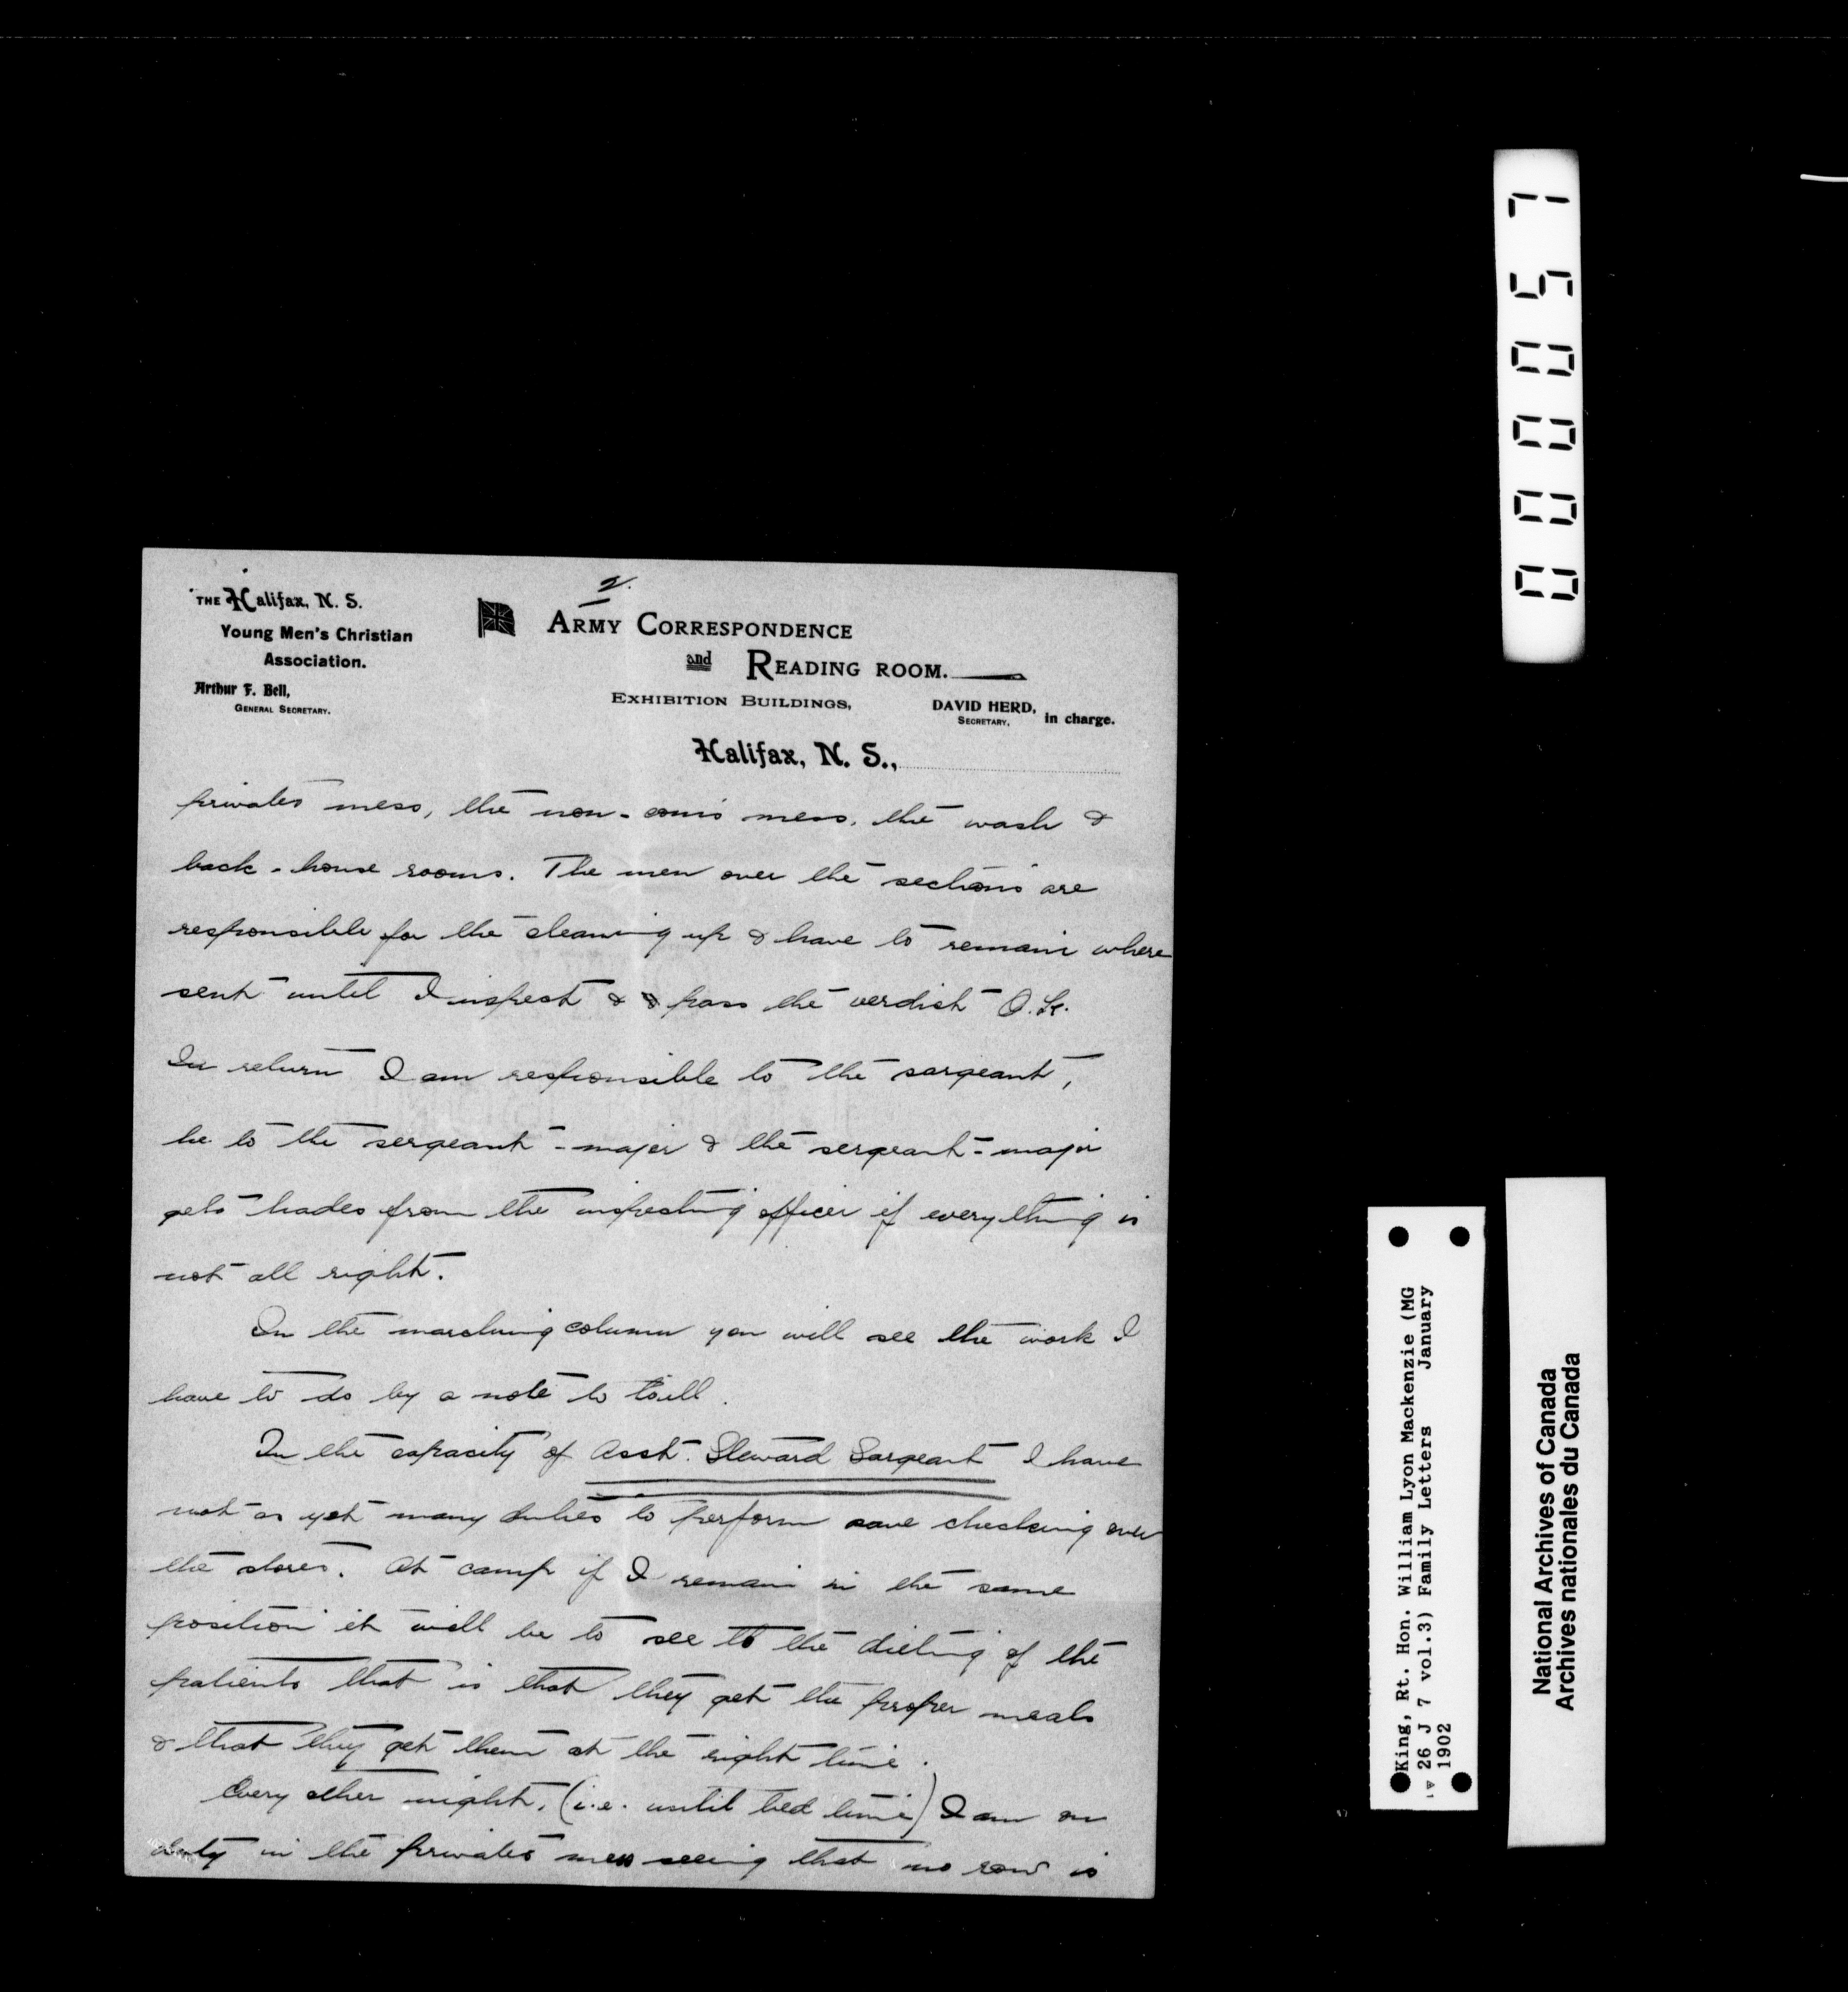 2.
THE Halifax, N. S.
Young Men's Christian
Association.
Arthur F. Bell,
GENERAL SECRETARY.
ARMY CORRESPONDENCE
and READING ROOM.
EXHIBITION BUILDINGS,
DAVID HERD, in charge.
SECRETARY,
Halifax, N. S.,
privates mess, the non-com's mess, the wash &
back-house rooms. The men over the sections are
responsible for the cleaning up & have to remain where
sent until I inspect & pass the verdict O.K.
In return I am responsible to the sargeant,
he to the sergeant-major & the sergeant-major
gets hades from the inspecting officer if everything is
not all right.
In the marching column you will see the work I
have to do by a note to
In the capacity of Asst. Steward Sargeant I have
not as yet many duties to perform save checking over
the stores. At camp if I remain in the same
position it will be to see to the dieting of the
patients that is that they get the proper meals
& that they get them at the right time.
Every other night, (i.e. until bed time) I am on
duty in the privates mess seeing that no row is
000057
King, Rt. Hon. William Lyon Mackenzie (MG
26 J 7 vol.3) Family Letters January
1902
National Archives of Canada
Archives nationales du Canada